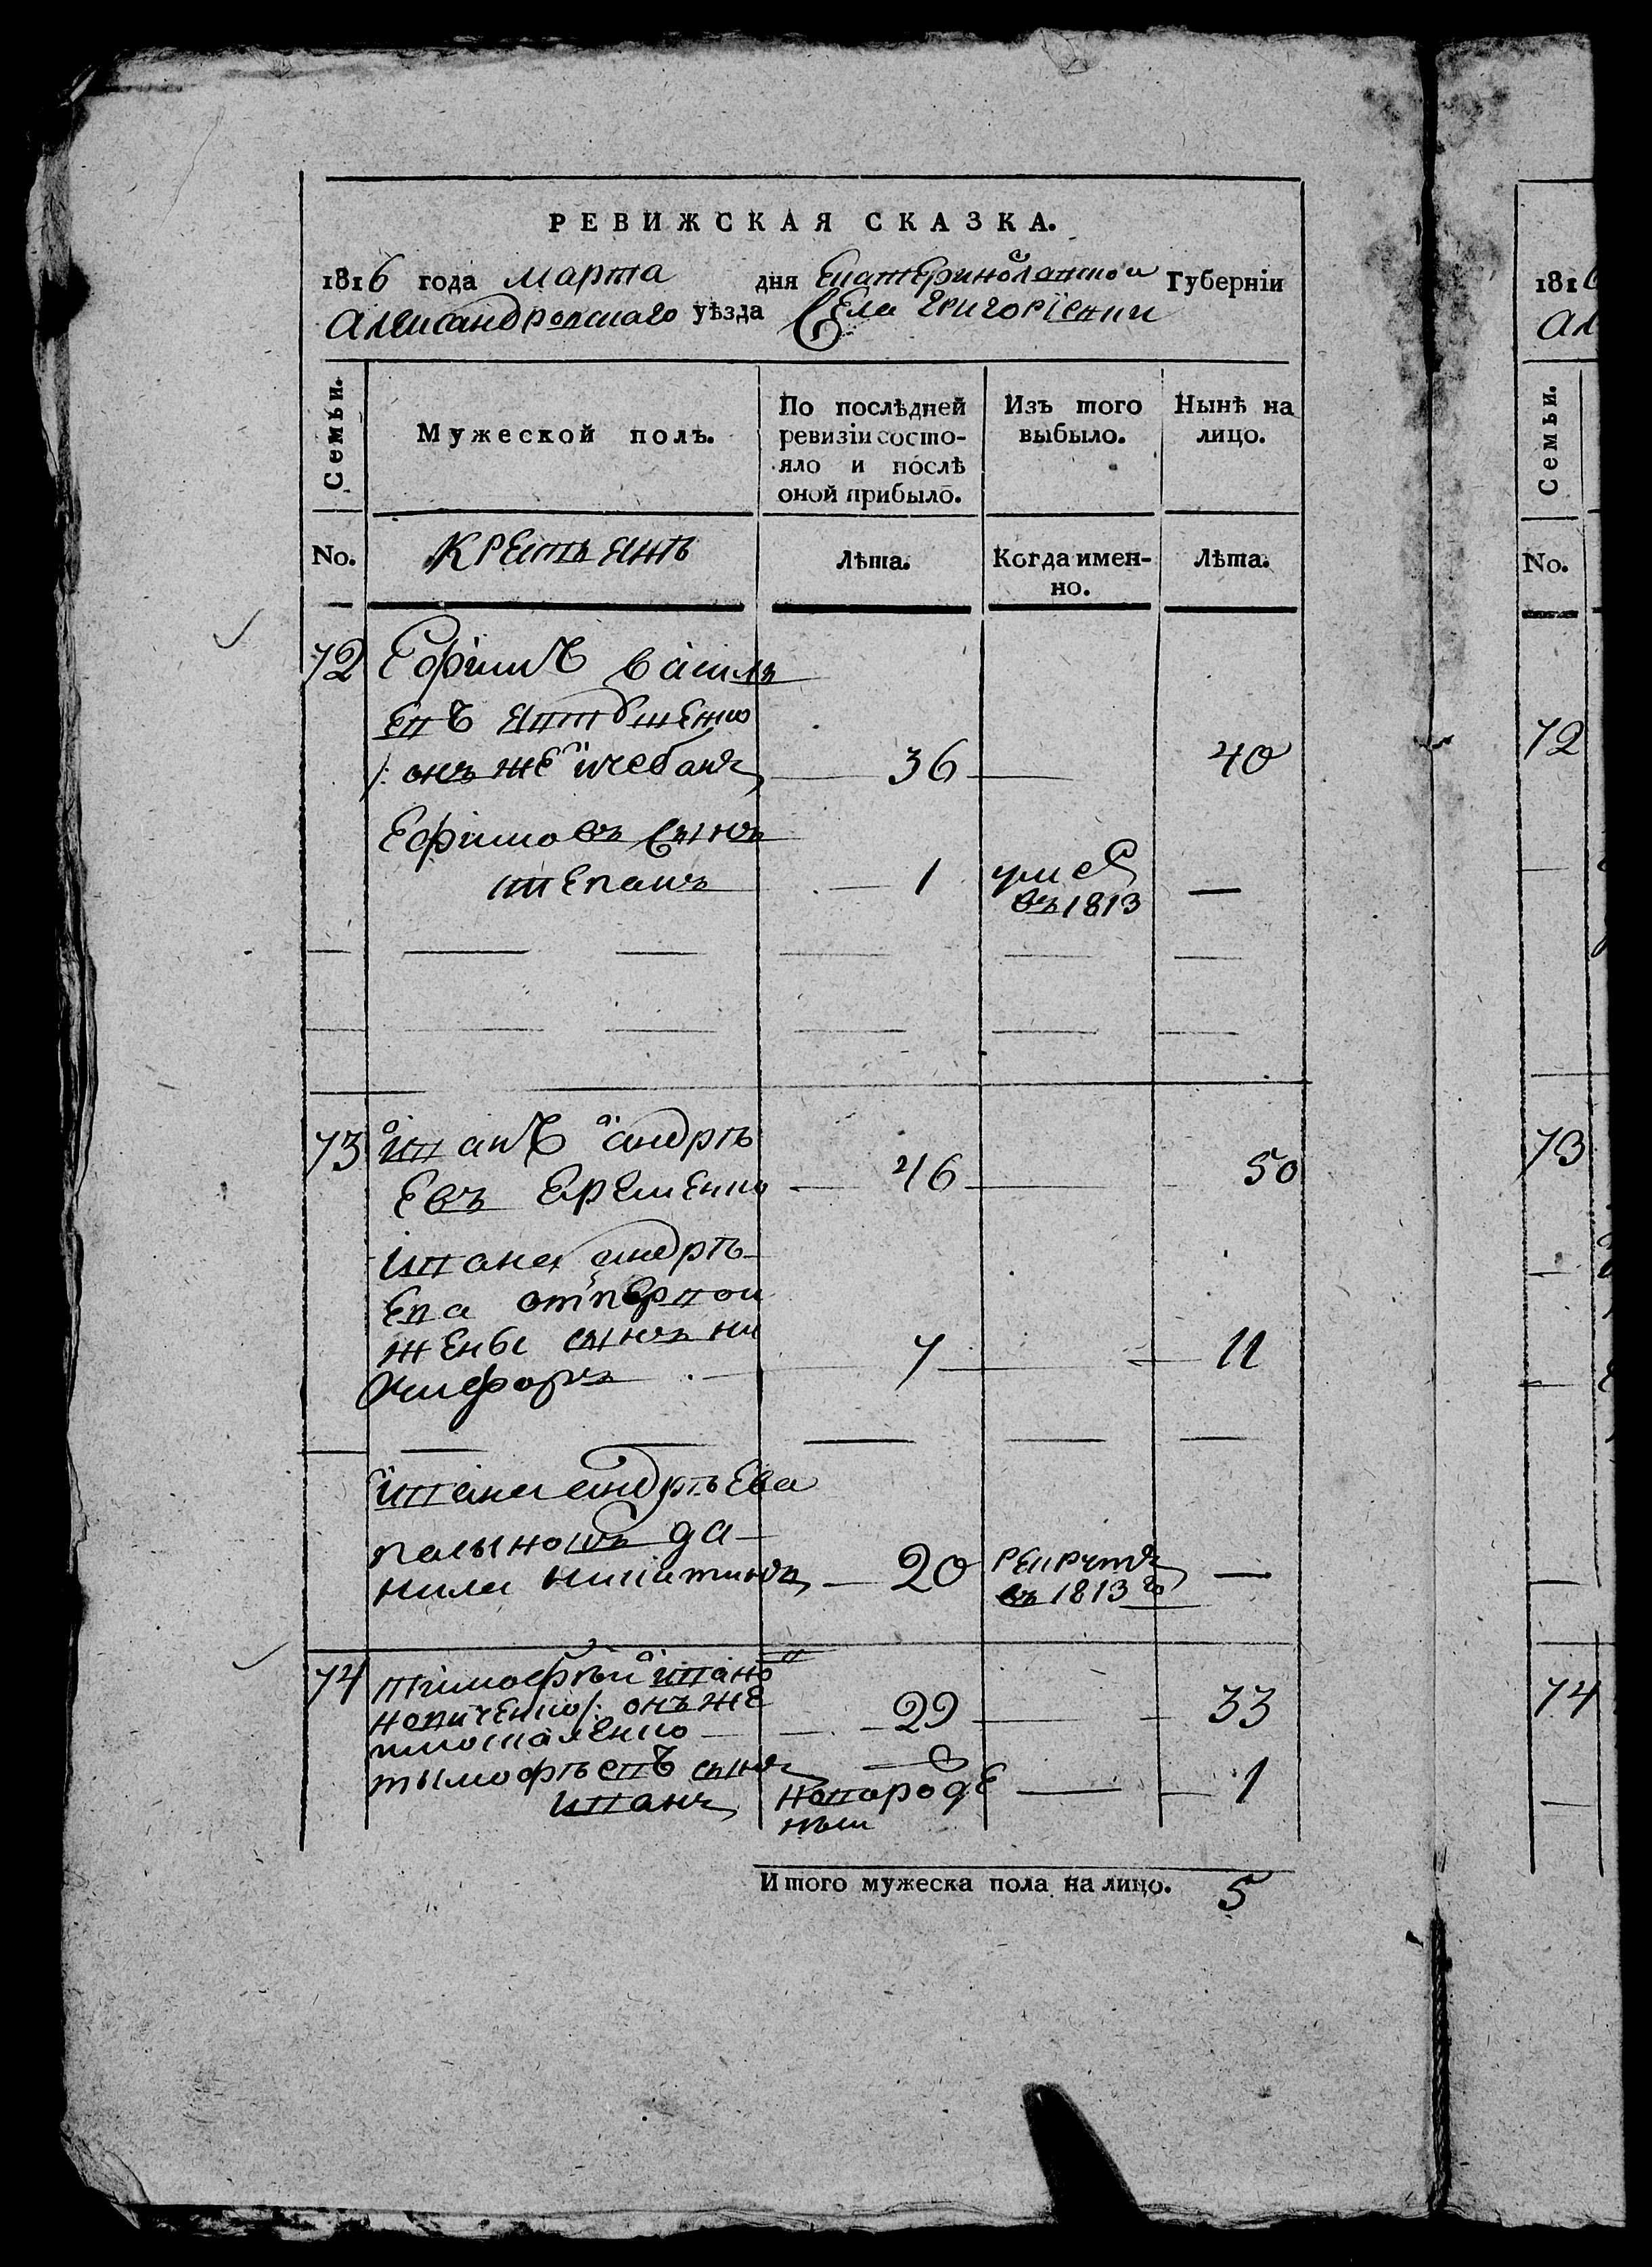 РЕВИЖСКАЯ СКАЗКА.
1816 года Марта дня Екатеринославской Губерніи
Александровскаго уѣзда Села Григоріевки
Семьи.
Мужеской полъ.
По послѣдней ревизіи состояло и послѣ оной прибыло.
Изъ того выбыло.
Нынѣ на лицо.
No.
Крестьянъ
Лѣта.
Когда именно.
Лѣта.
72 Ефимъ василь
евъ
онъ же 36 40
Ефимовъ сынъ
степанъ 1 умеръ
въ 1813
73 иванъ андрѣ
евъ Еременко 46 50
ивана андрѣ
ева отпервой
жены сынъ ни
кифоръ 7 11
ивана андрѣева
да
нила никитинъ 20 рекрутъ
въ 1813го
74 тимофѣй ивано
онъ же
29 33
тымофѣевъ сынъ
иванъ новороде
нъи 1
Итого мужеска пола на лицо. 5
1816
Ал
Семьи.
No.
72
73
74